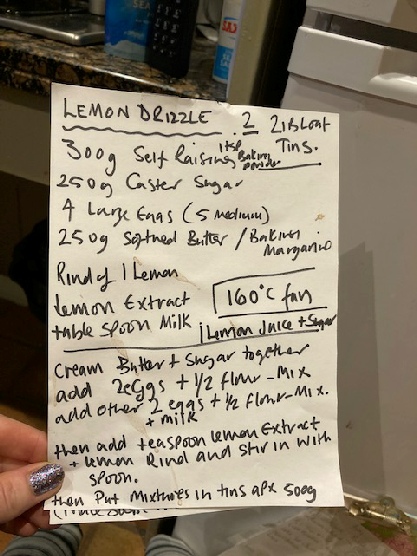 LEMON DRIZZLE . 2 2lb Loaf Tins.
300g Self Raising 1tsp Baking powder
250g Caster Sugar
4 Large Eggs (5 medium)
250g Softned Butter / Baking Margarine
Rind of 1 Lemon
Lemon Extract
160°C fan
table spoon Milk
1 Lemon Juice + Sugar
Cream Butter + Sugar together
add 2 eggs + 1/2 flour - Mix
add other 2 eggs + 1/2 flour - Mix.
+ milk
then add teaspoon lemon Extract
+ lemon Rind and Stir in with
spoon.
then Put Mixtures in tins apx 500g